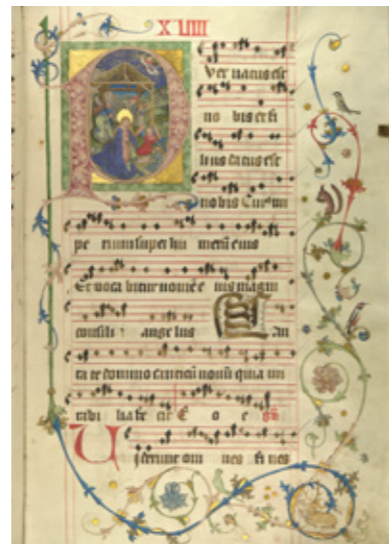 XVIIII
Uer natus est
no bis et fi
lius datus est
no bis Cuius im
pe rium super hu merū eius
Et voca bitur nomē e ius magni
consili i ange lus Can
ta te domino canticū novū quia mi
rabi lia fe cit E o e
Viderunt om nes fi nes